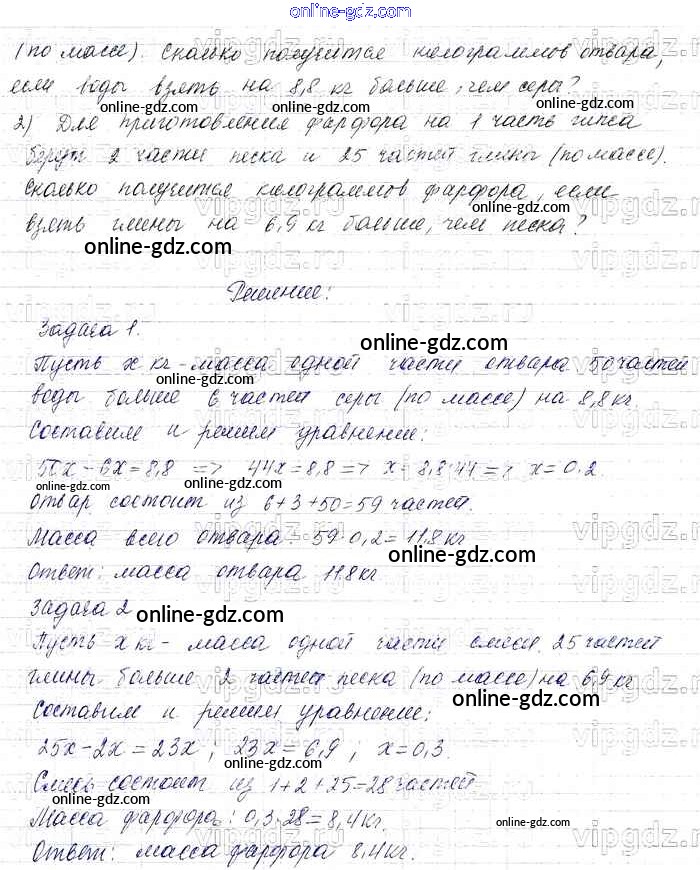 online-gdz.com
(по массе). Сколько получится килограммов отвара,
если воды взять на 8,8 кг больше, чем серы?
online-gdz.com online-gdz.com
2) Для приготовления фарфора на 1 часть гипса
берут 2 части песка и 25 частей глины (по массе).
Сколько получится килограммов фарфора, если
взять глины на 6,9 кг больше, чем песка?
online-gdz.com online-gdz.com
Решение:
Задача 1.
online-gdz.com
Пусть х кг - масса одной части отвара 50 частей
воды больше 6 частей серы (по массе) на 8,8 кг.
Составим и решим уравнение:
50х - 6х = 8,8 => 44х = 8,8 => х = 8,8:44 => х = 0,2.
online-gdz.com online-gdz.com
Отвар состоит из 6+3+50=59 частей.
Масса всего отвара - 59·0,2=11,8 кг
online-gdz.com
Ответ: масса отвара 11.8кг
Задача 2
online-gdz.com
Пусть х кг - масса одной части смеси. 25 частей
глины больше 2 частей песка (по массе) на 6,9 кг
online-gdz.com
Составим и решим уравнение:
25х-2х=23х; 23х=6,9; х=0,3.
Смесь состоит из 1+2+25=28 частей
online-gdz.com
Масса фарфора: 0,3·28=8,4кг.
online-gdz.com
Ответ: масса фарфора 8.4кг.
vipgdz.ru